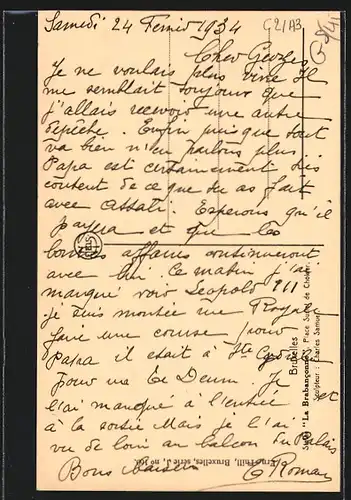 Samedi 24 Fevrier 1934
G21A3
Cher Georges
Je ne voulais plus vivre Il
me semblait toujours que
j'allais recevoir une autre
depêche. Enfin puisque tout
va bien n'en parlons plus.
Papa est certainement très
content de ce que tu as fait
avec Attali. Esperons qu'il
payera et que les
bonnes affaires continueront
avec lui. Ce matin j'ai
manqué voir Leopold III
je suis montée rue Royale
faire une course pour
Papa il était à Ste Gudule
pour un Te Deum. Je
l'ai manqué à l'entrée et
à la sortie Mais je l'ai
vu de loin au balcon du Palais
Bons baisers
Bruxelles
"La Brabançonne", Place Surlet de Chokier.
Sculpteur : Charles Samuel.
Ern. Thill, Bruxelles, série, no